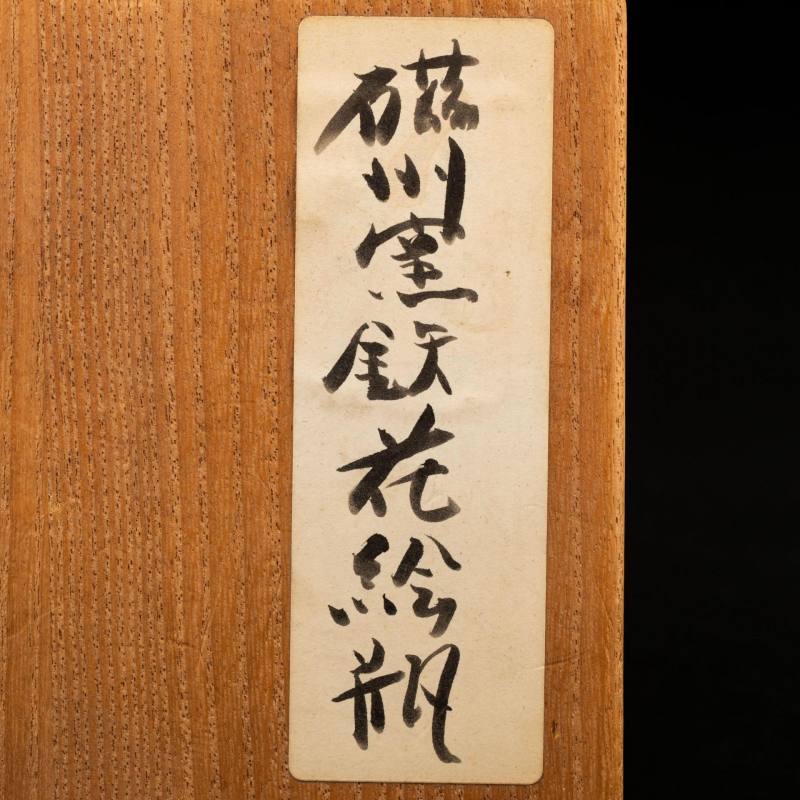 磁州窯鉄花絵瓶